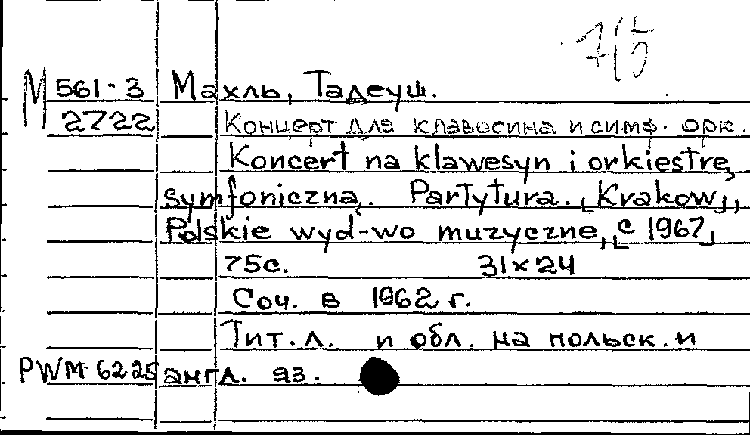 М 561-3 Махль, Тадеуш.
2722 Концерт для клавесина и симф. орк.
Koncert na klawesyn i orkiestrę
symfoniczną. Partytura. [Krakow],
Polskie wyd-wo muzyczne, [c 1967]
75с. 31x24
Соч. в 1962 г.
Тит. л. и обл. на польск. и
PWM-6225 англ. яз.